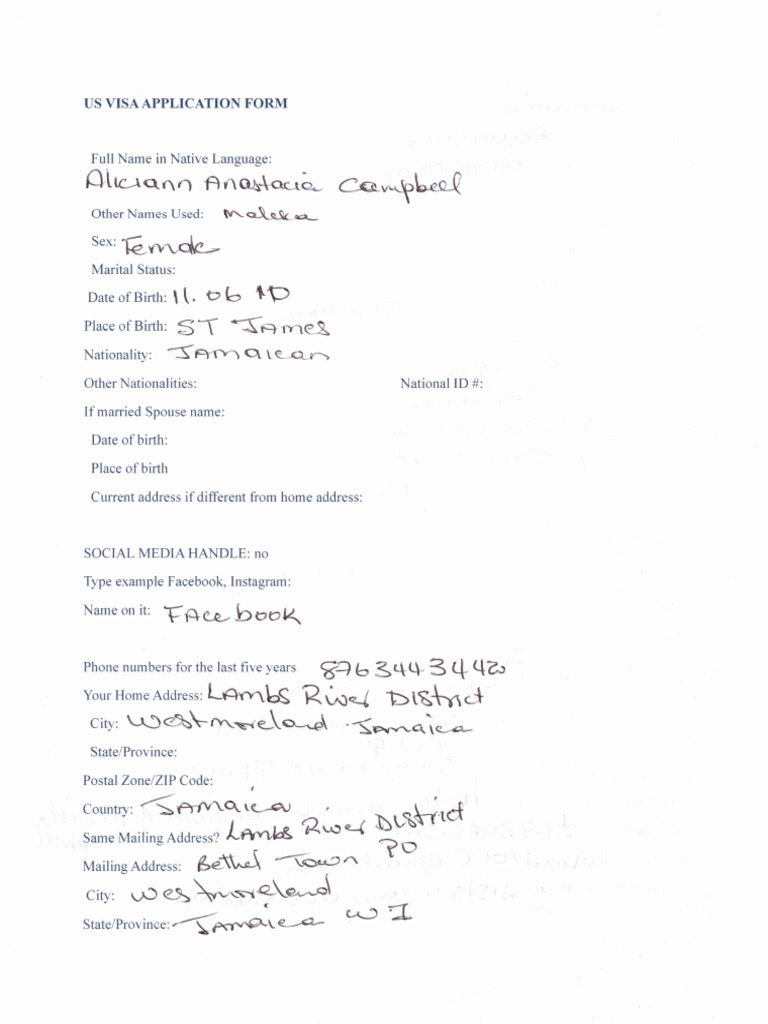 US VISA APPLICATION FORM
Full Name in Native Language:
Aliciann Anastacia Campbell
Other Names Used: Maleka
Sex: Female
Marital Status:
Date of Birth: 11. 06
Place of Birth: ST James
Nationality: Jamaican
Other Nationalities: National ID #:
If married Spouse name:
Date of birth:
Place of birth
Current address if different from home address:
SOCIAL MEDIA HANDLE: no
Type example Facebook, Instagram:
Name on it: FAcebook
Phone numbers for the last five years 8763443442
Your Home Address: LAmbs River District
City: Westmoreland Jamaica
State/Province:
Postal Zone/ZIP Code:
Country: Jamaica
Same Mailing Address? Lambs River District
Mailing Address: Bethel Town PO
City: Westmoreland
State/Province: Jamaica W I